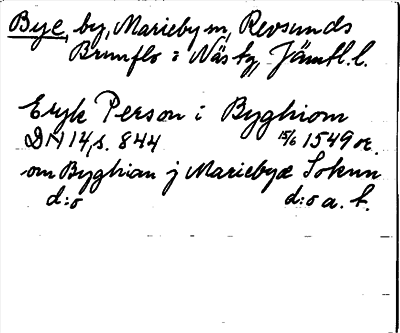 Bye, by, Marieby sn, Revsunds
Brunflo : Näs tg, Jämtl. l.
Eryk Person i Byghiom
DN 14, s. 844 15/6 1549 or.
om Byghian j Mariebyæ Soknn
d:o d:o a. b.